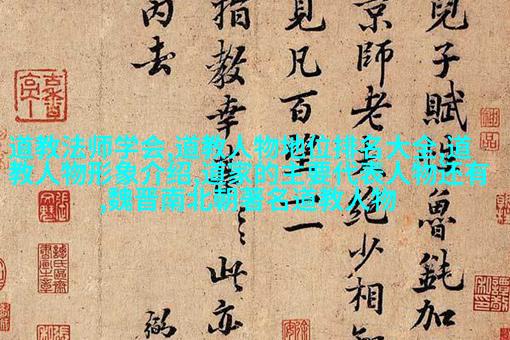 道教法师学会,道教人物地位排名大全,道
教人物形象介绍,道家的主要代表人物还有
,魏晋南北朝著名道教人物
兒子賦性魯鈍加
京師老絶少相
見凡百一
指教幸此亦